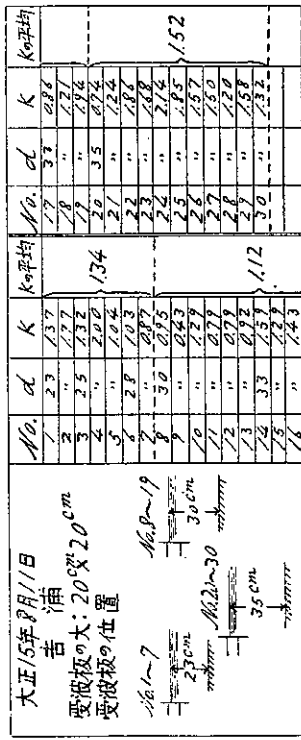 大正15年8月11日
吉浦
受波板の大: 20cm×20cm
受波板の位置
No.1〜7
23cm
No.8〜19
30cm
No.20〜30
35cm
No. d K Kの平均
1 23 1.37
2 〃 1.77
3 25 1.32
4 〃 2.00 1.34
5 〃 1.04
6 28 1.03
7 〃 0.87
8 30 0.95
9 〃 0.43
10 〃 1.29
11 〃 0.79
12 〃 0.79
13 〃 0.92 1.12
14 33 1.59
15 〃 1.29
16 〃 1.43
No. d K Kの平均
17 33 0.86
18 〃 1.21
19 〃 1.94
20 35 0.74
21 〃 1.24
22 〃 1.86
23 〃 1.68
24 〃 2.14
25 〃 1.85 1.52
26 〃 1.57
27 〃 1.50
28 〃 1.20
29 〃 1.58
30 〃 1.32